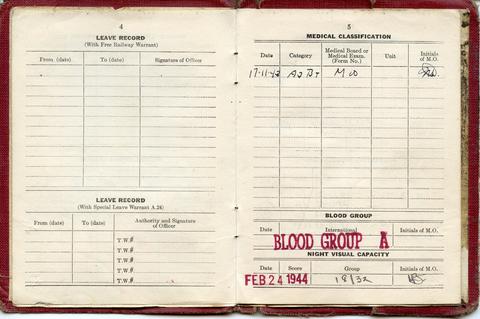 4
LEAVE RECORD
(With Free Railway Warrant)
From (date) To (date) Signature of Officer
LEAVE RECORD
(With Special Leave Warrant A.24)
From (date) To (date) Authority and Signature of Officer
T.W.#
T.W.#
T.W.#
T.W.#
T.W.#
5
MEDICAL CLASSIFICATION
Date Category Medical Board or Medical Exam. (Form No.) Unit Initials of M.O.
17-11-42
BLOOD GROUP
Date International Initials of M.O.
BLOOD GROUP A
NIGHT VISUAL CAPACITY
Date Score Group Initials of M.O.
FEB 24 1944 18/32